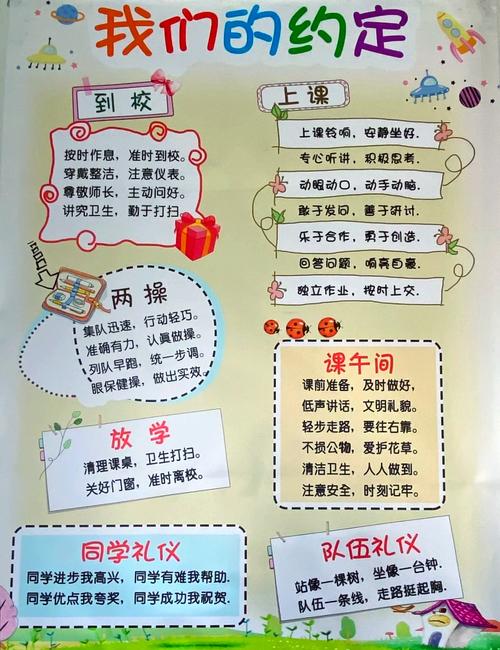 我们的约定
到校
按时作息，准时到校。
穿戴整洁，注意仪表。
尊敬师长，主动问好。
讲究卫生，勤于打扫。
上课
上课铃响，安静坐好.
专心听讲，积极思考.
动眼动口，动手动脑.
敢于发问，善于研讨.
乐于合作，勇于创造.
回答问题，响亮自豪.
独立作业，按时上交.
两操
集队迅速，行动轻巧。
准确有力，认真做操。
列队早跑，统一步调。
眼保健操，做出实效。
课午间
课前准备，及时做好，
低声讲话，文明礼貌。
轻步走路，要往右靠。
不损公物，爱护花草。
清洁卫生，人人做到。
注意安全，时刻记牢。
放学
清理课桌，卫生打扫。
关好门窗，准时离校。
同学礼仪
同学进步我高兴，同学有难我帮助.
同学优点我夸奖，同学成功我祝贺.
队伍礼仪
站像一棵树，坐像一台钟.
队伍一条线，走路挺起胸.